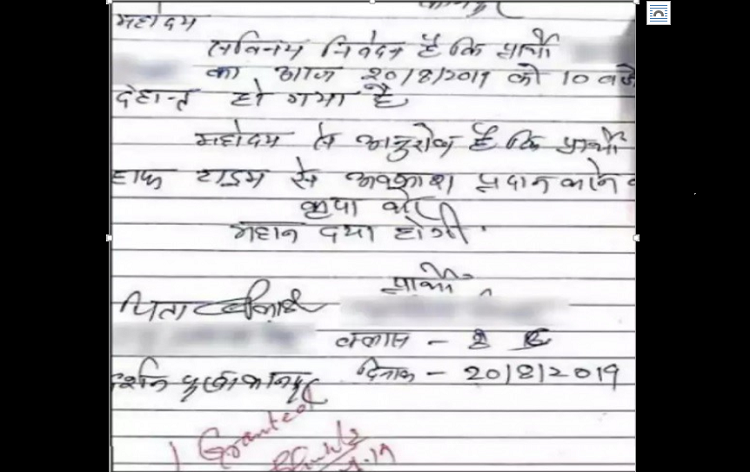 महोदय
सविनय निवेदन है कि प्रार्थी
का आज 20/8/2019 को 10 बजे
देहान्त हो गया है
महोदय से अनुरोध है कि प्रार्थी
हाफ टाइम से अवकाश प्रदान करने
कृपा करें
महान दया होगी।
प्रार्थी
पिता
क्लास - 8
दिनांक - 20/8/2019
Granted